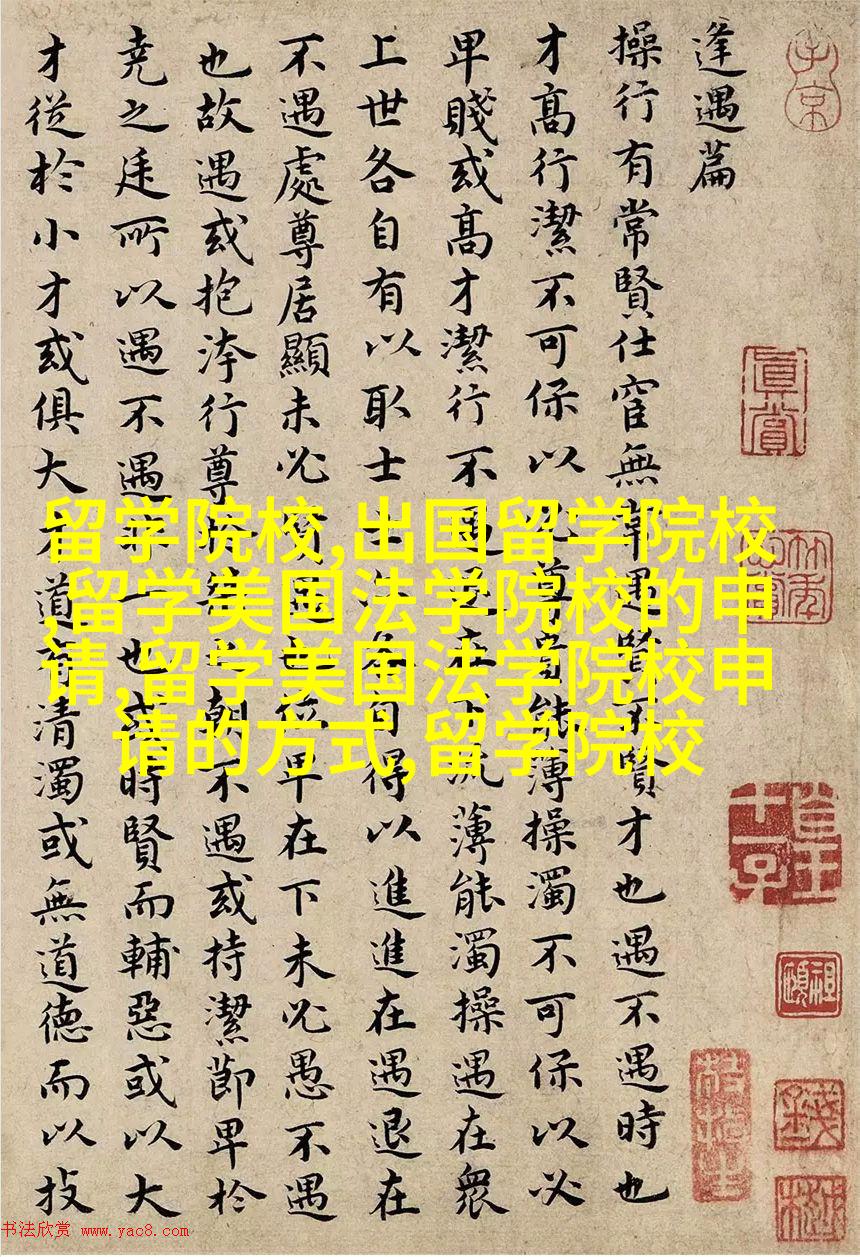 逢遇篇
操行有常賢仕宦無常遇賢不賢才也遇不遇時也
才高行潔不可保以必尊貴能薄操濁不可保以必
卑賤或高才潔行不遇退在下流薄能濁操遇在衆
上世各自有以取士士亦各自得以進進在遇退在
不遇處尊居顯未必賢遇也位卑在下未必愚不遇
也故遇或抱洿行尊於桀之朝不遇或持潔節卑於
堯之廷所以遇不遇非一也或時賢而輔惡或以大
才從於小才或俱大才道有清濁或無道德而以技
留学院校,出国留学院校
,留学美国法学院校的申
请,留学美国法学院校申
请的方式,留学院校
真賞
书法欣赏 www.yac8.com